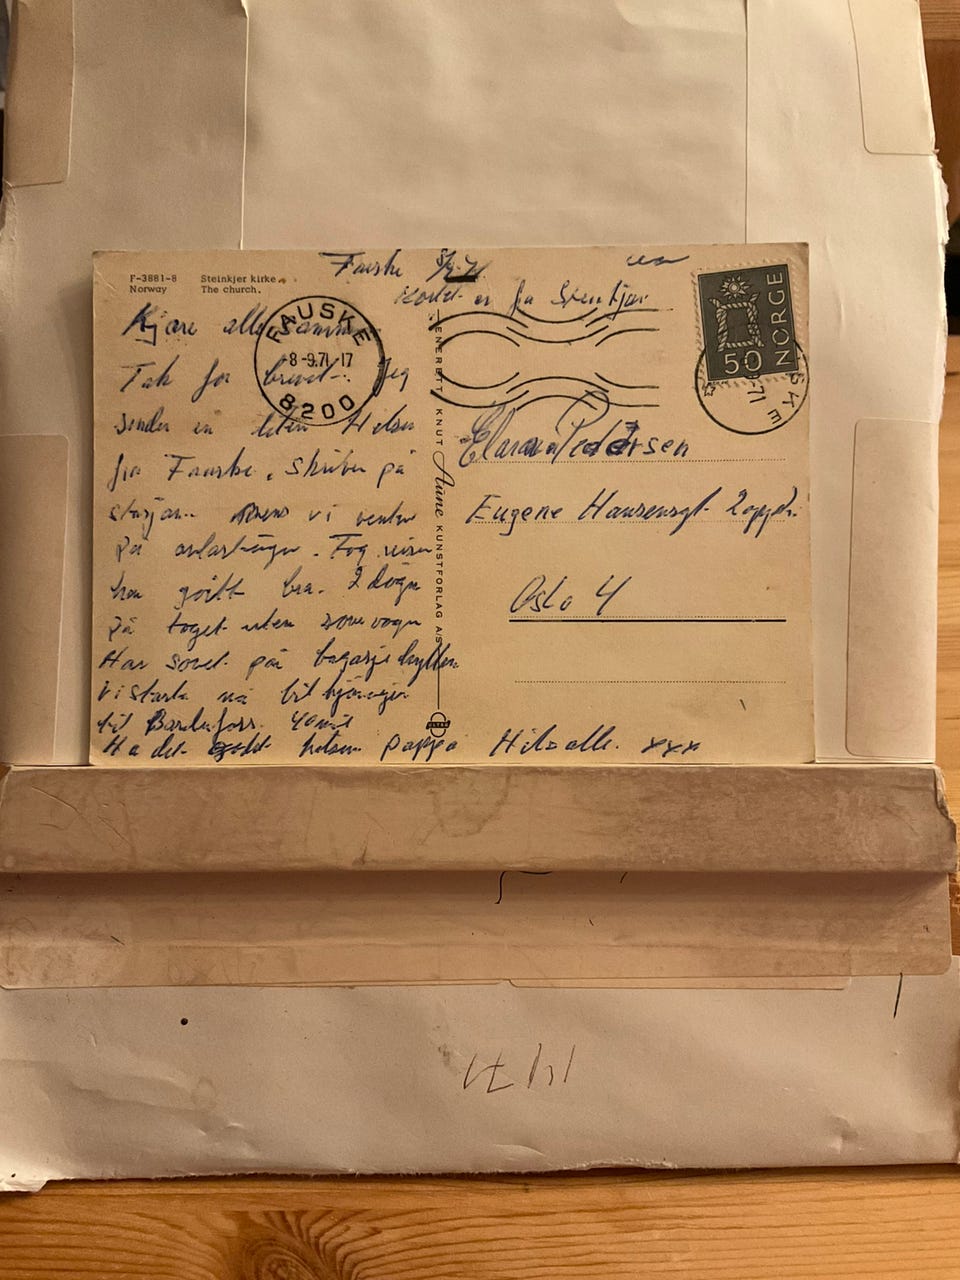 F-3881-8 Steinkjer kirke.
Norway The church.
Fauske 8/9-71
Kortet er fra Steinkjer
Kjære alle sammen
Tak for brevet. Jeg
sender en liten Hilsen
fra Fauske. Skriver på
stasjon mens vi venter
på avlastningen. Tog reisen
har gått bra. 2 døgn
på toget uten sovevogn
Har sovet på bagasjehyllen
Vi starter nå bil kjøringen
til Bardufoss. 40 mil
Ha det godt hilsen pappa Hils alle. xxx
FAUSKE
-8-9.71-17
8200
ENERETT KNUT Aune KUNSTFORLAG A/S
NORGE
50
Clara Pedersen
Eugene Hansensgt 2 oppg.
Oslo 4